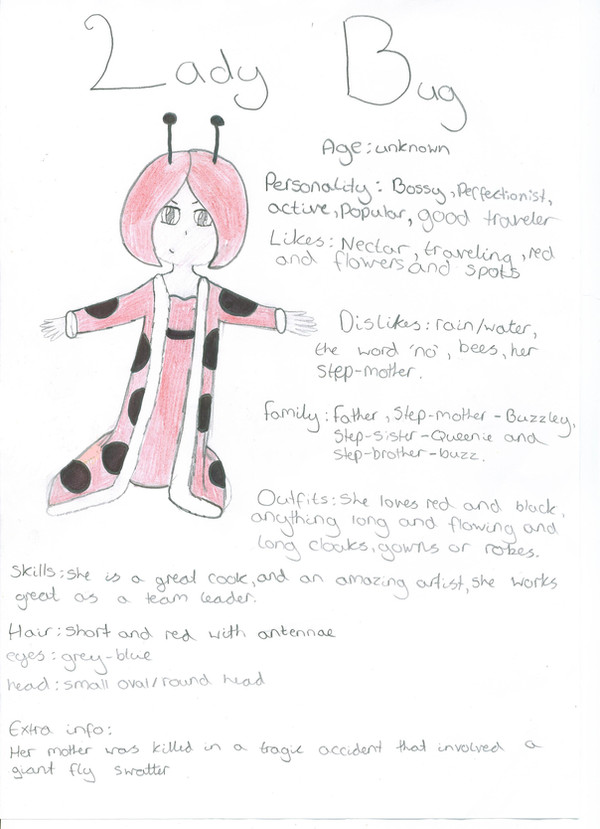 Lady Bug
Age: unknown
Personality: Bossy, Perfectionist,
active, Popular, good traveler
Likes: Nectar, traveling, red
and flowers and spots
Dislikes: rain/water,
the word 'no', bees, her
Step-mother.
Family: Father, Step-mother - Buzzley,
Step-sister - Queenie and
Step-brother - buzz.
Outfits: She loves red and black,
anything long and flowing and
long cloaks, gowns or robes.
Skills: She is a great cook, and an amazing artist, she works
great as a team leader.
Hair: Short and red with antennae
eyes: grey-blue
head: small oval/round head
Extra info:
Her mother was killed in a tragic accident that involved a
giant fly swatter